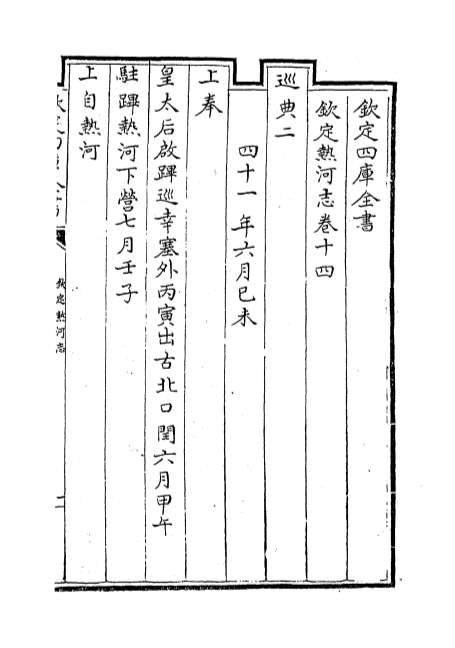 欽定四庫全書
欽定熱河志卷十四
巡典二
四十一年六月己未
上奉
皇太后啟蹕巡幸塞外丙寅出古北口閏六月甲午
駐蹕熱河下營七月壬子
上自熱河
欽定熱河志